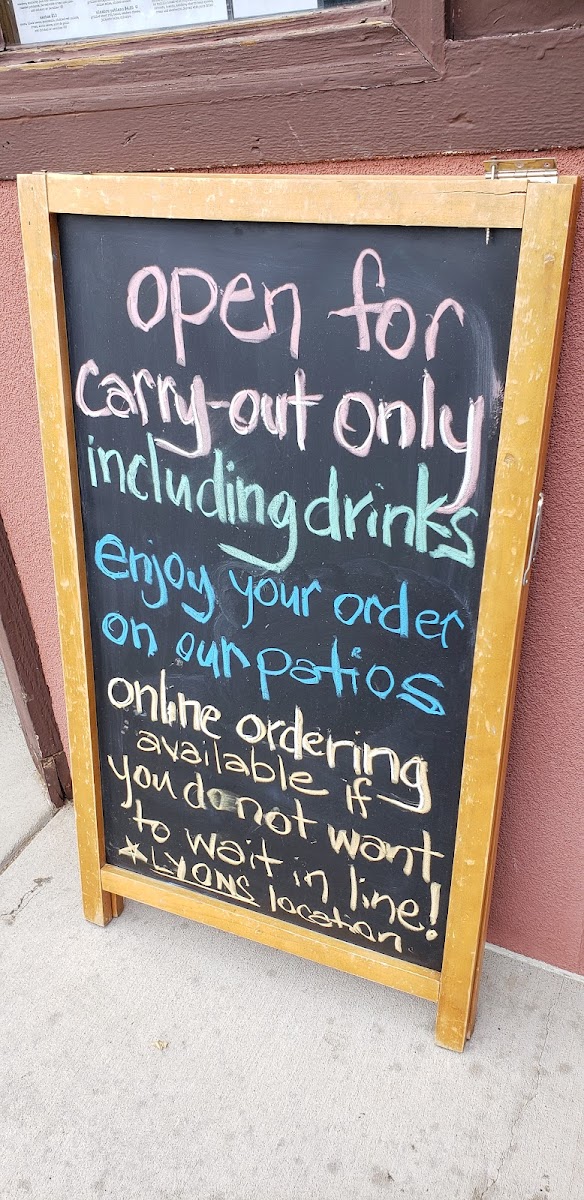 open for
carry-out only
including drinks
enjoy your order
on our patios
online ordering
available if
you do not want
to wait in line!
☆LYONS location